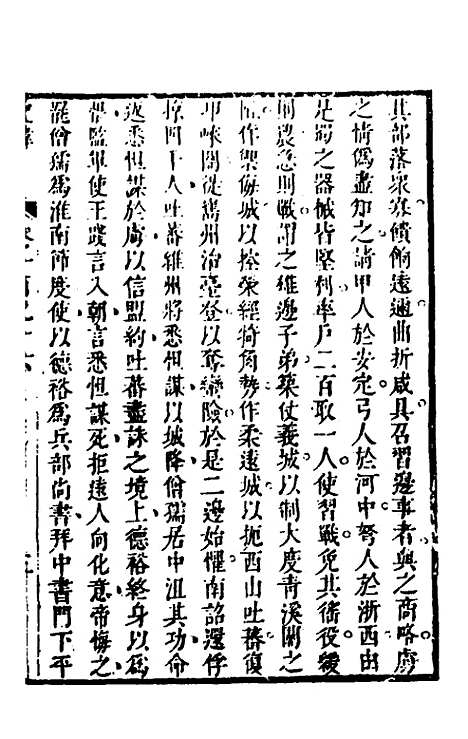 其部落眾寡饋餉遠邇曲折咸具召習邊事者與之商略虜
之情偽盡知之請甲人於安定弓人於河中弩人於浙西由
是蜀之器械皆堅利率戶二百取一人使習戰免其徭役緩
則農急則戰謂之雄邊子弟築仗義城以制大度青溪關之
阻作禦侮城以控榮經犄角勢作柔遠城以扼西山吐蕃復
邛崍關徙嶲州治臺登以奪蠻險於是二邊始懼南詔還俘
掠四千人吐蕃維州將悉怛謀以城降僧孺居中沮其功命
返悉怛謀於虜以信盟約吐蕃盡誅之境上德裕終身以為
恨監軍使王踐言入朝言悉怛謀死拒遠人向化意帝悔之
罷僧孺為淮南節度使以德裕為兵部尚書拜中書門下平